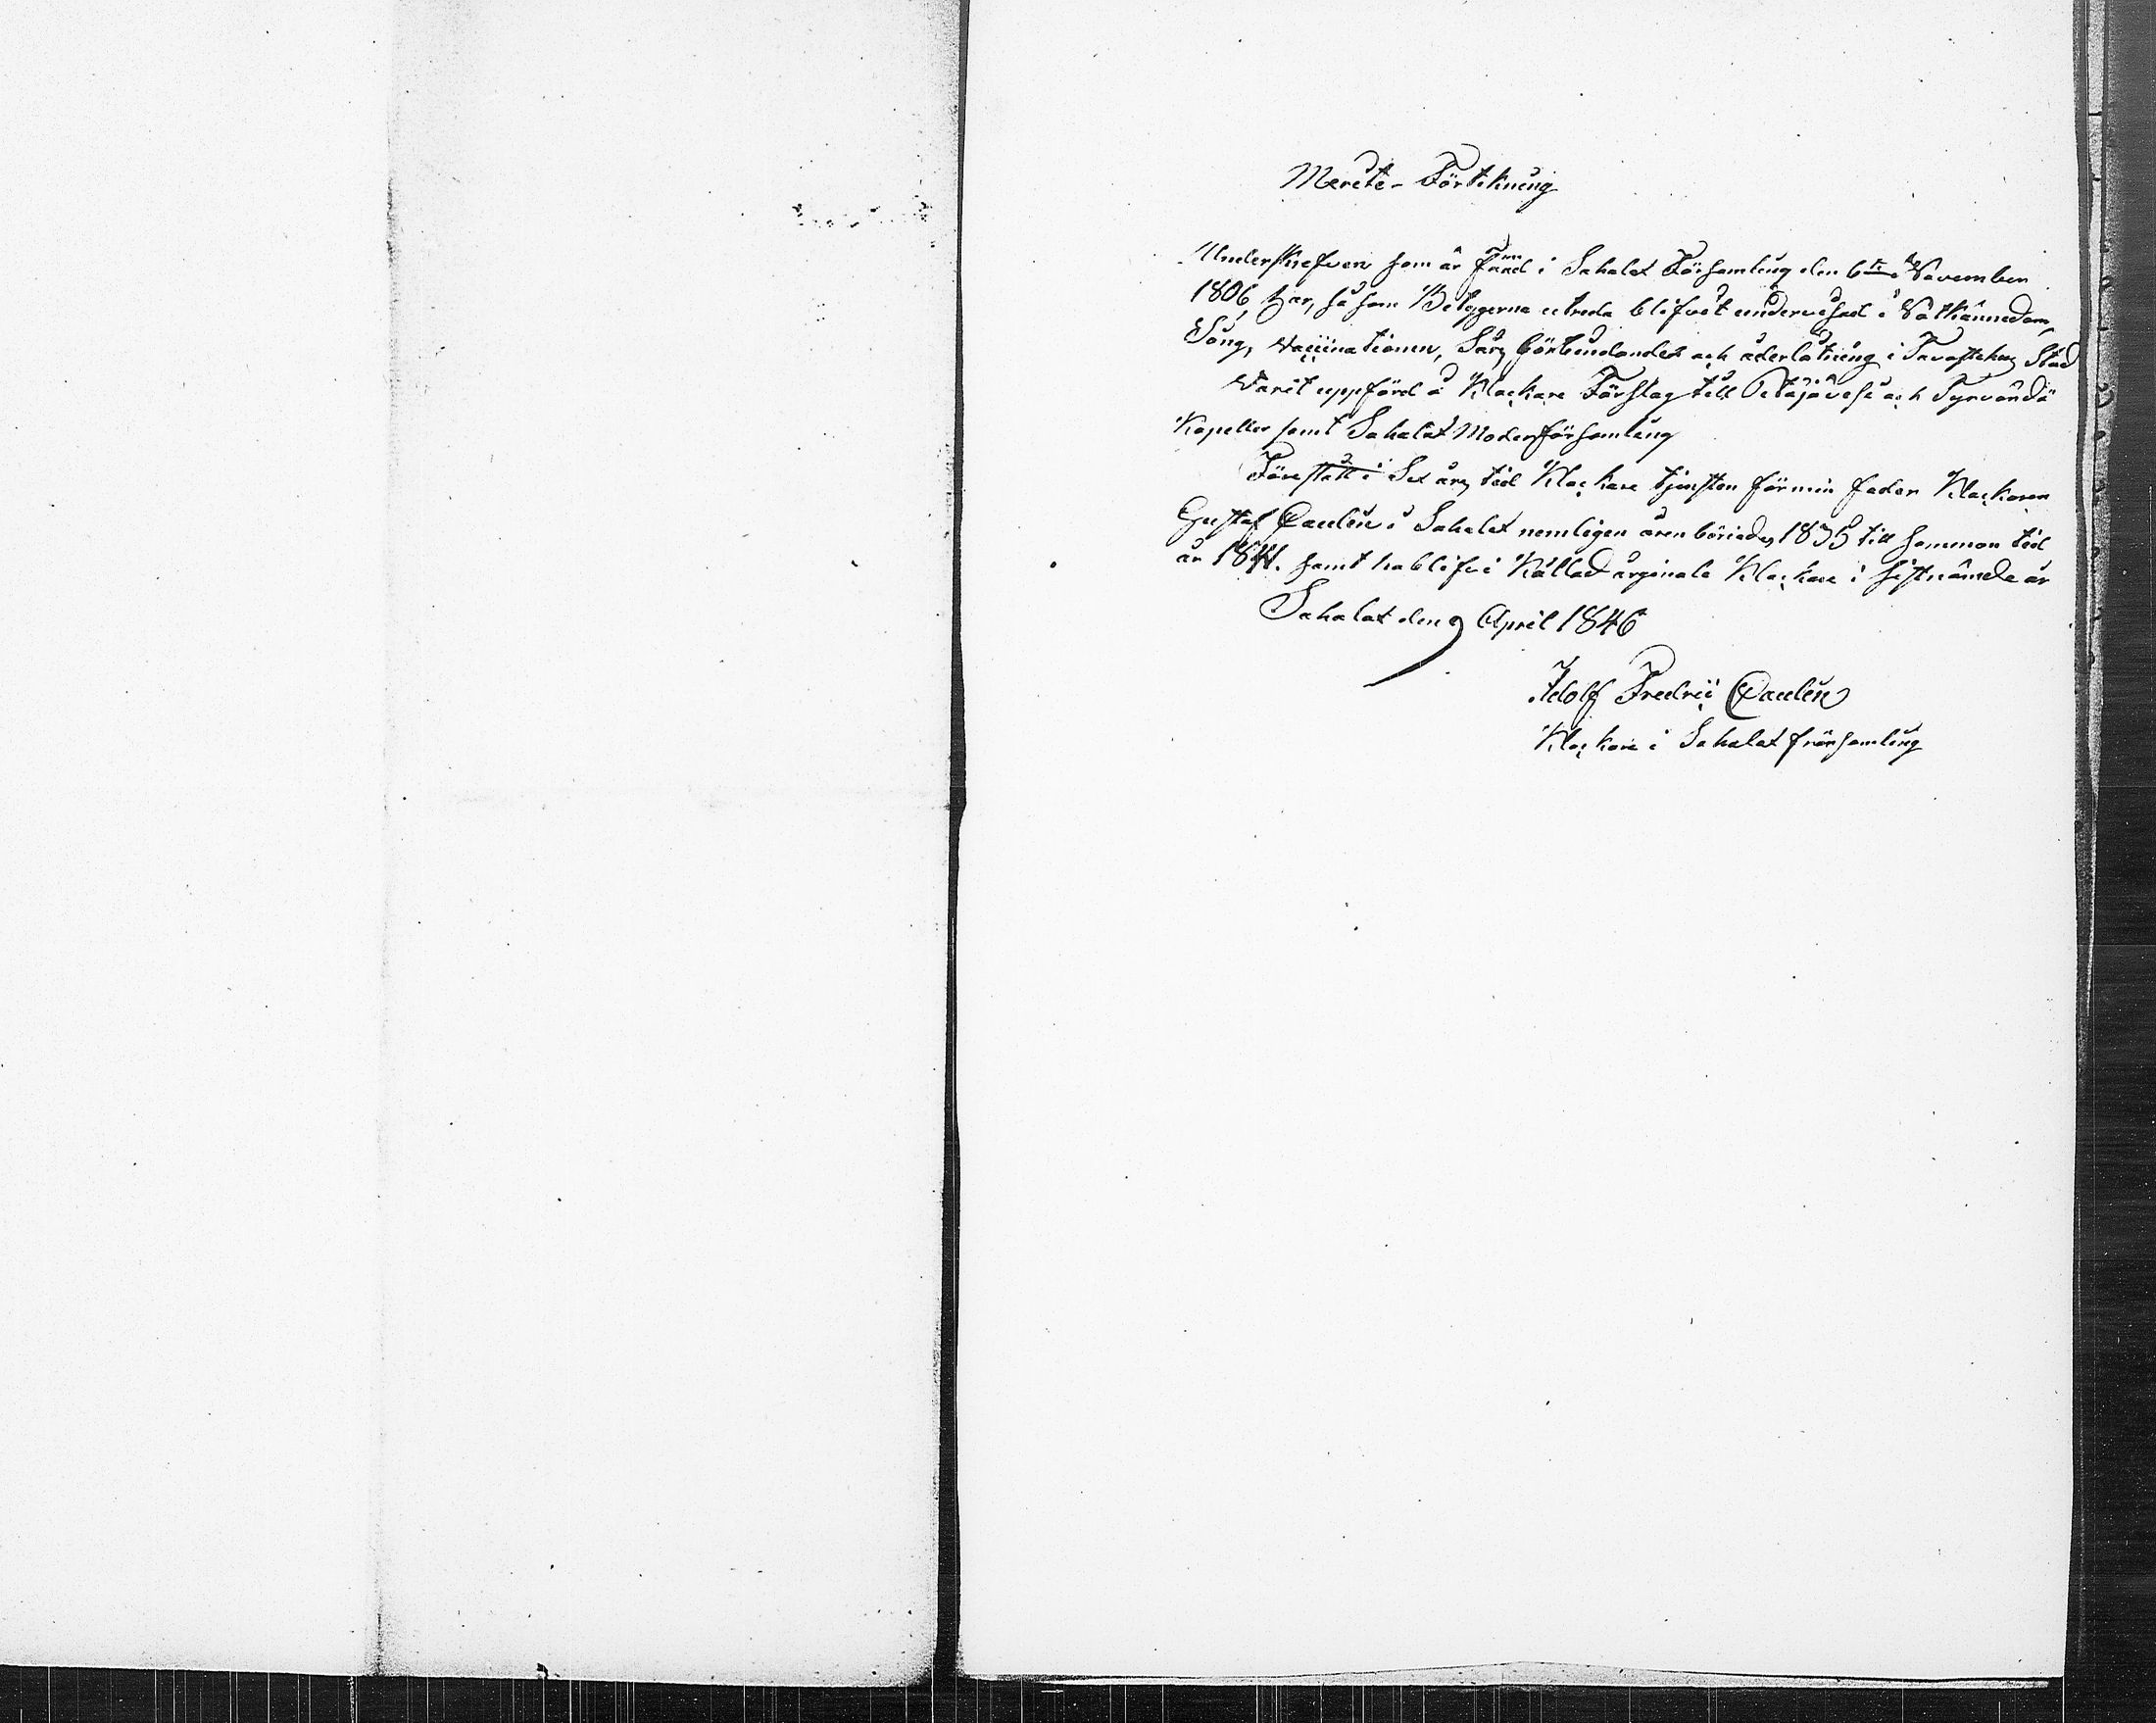 Merite-Förtekning
Underskrefven som är Född i Sahalax Församling den 6te November
1806, har, så som Betygerna utreda blifvit undervisad i Nåtkännedom,
Sång, Vaccinationen, Sårs förbindandet och åderlåtning i Tavastehus Stad
Varit uppförd å Klockare Förslag till Petäjävesi och Tyrvändä
Kapeller samt Sahalax Moderförsamling
Förestått i Sex års tid Klockare tjensten för min fader Klockaren
Gustaf Qvulén i Sahalax nemligen åren börjades 1835 till samman tid
år 1841. samt ha blifvi Kallad arginale Klockare i sistnämde år
Sahalax den 9 April 1846
Adolf Fredric
Klockare i Sahalax församling